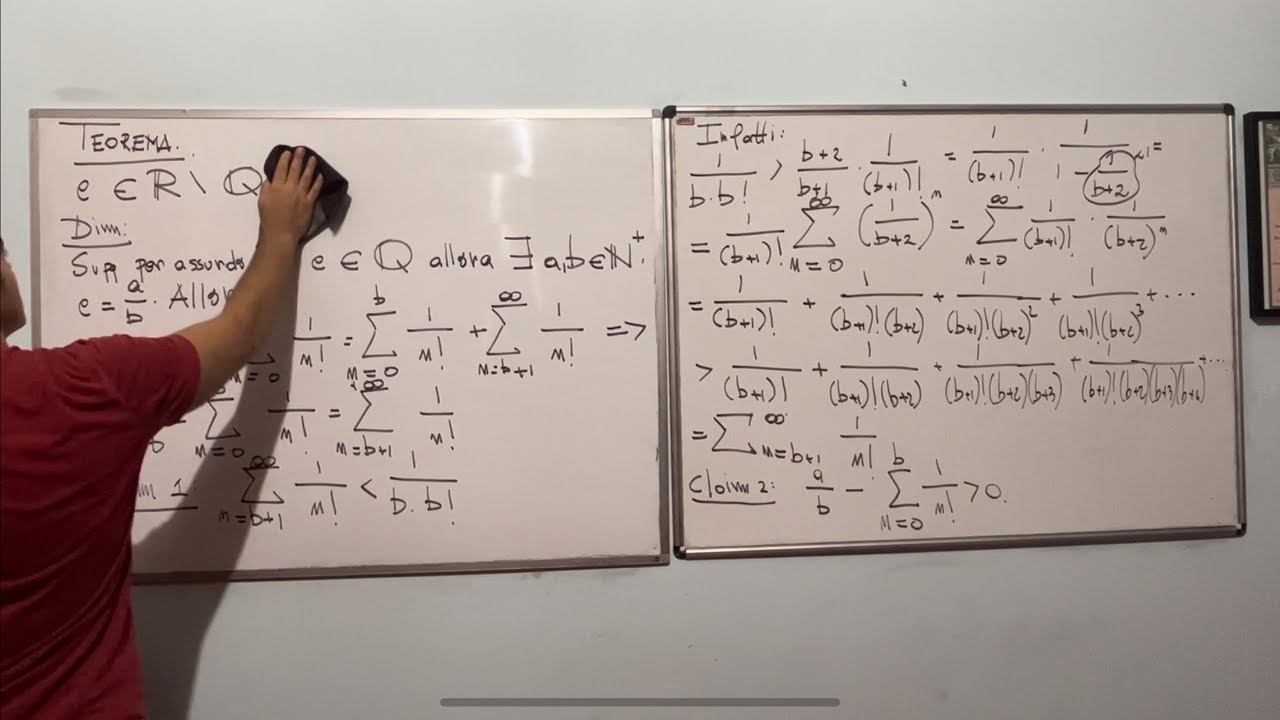 TEOREMA.
e ∈ ℝ \ ℚ
Dim:
Supp per assurdo e ∈ ℚ allora ∃ a,b ∈ ℕ⁺:
e = a/b. Allor
∑_{n=0} 1/n! = ∑_{n=0}^{b} 1/n! + ∑_{n=b+1}^{∞} 1/n! =>
∑_{n=0}^{b} 1/n! = ∑_{n=b+1}^{∞} 1/n!
m 1: ∑_{n=b+1}^{∞} 1/n! < 1/(b·b!)
Infatti:
1/(b·b!) > (b+2)/(b+1) · 1/(b+1)! = 1/(b+1)! · 1/(1 - 1/(b+2)) <1 =
= 1/(b+1)! ∑_{n=0}^{∞} (1/(b+2))^n = ∑_{n=0}^{∞} 1/(b+1)! · 1/(b+2)^n
= 1/(b+1)! + 1/((b+1)!(b+2)) + 1/((b+1)!(b+2)²) + 1/((b+1)!(b+2)³) + ...
> 1/(b+1)! + 1/((b+1)!(b+2)) + 1/((b+1)!(b+2)(b+3)) + 1/((b+1)!(b+2)(b+3)(b+4)) + ...
= ∑_{n=b+1}^{∞} 1/n!
Claim 2: a/b - ∑_{n=0}^{b} 1/n! > 0.